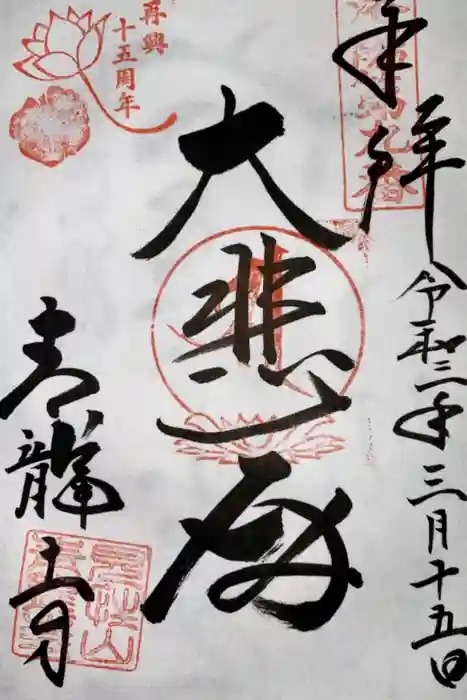 奉拝
令和三年三月十五日
大悲殿
青龍寺
再興
十五周年